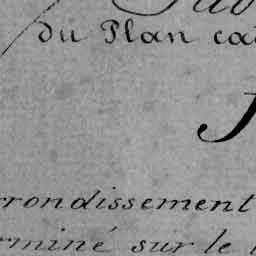 du Plan ca
rrondissement
erminé sur le